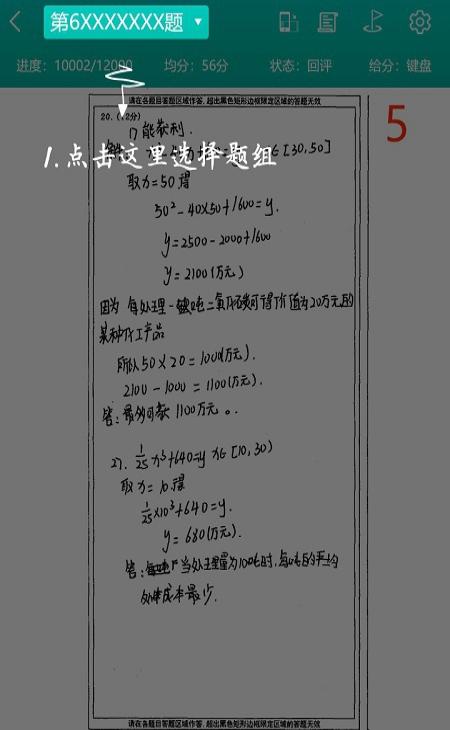 第6XXXXXXX题
进度：10002/12000 均分：56分 状态：回评 给分：键盘
请在各题目答题区域作答，超出黑色矩形边框限定区域的答题无效
5
20.（12分）
1）能获利．
1.点击这里选择题组
∈[30,50]
取x=50得
50²-40×50+1600=y.
y=2500-2000+1600
y=2100(万元)
因为 每处理一吨二氧化碳可得价值为20万元的
某种化工产品
所以50×20=1000(万元).
2100-1000=1100(万元).
答：最多可获1100万元。
2). 1/25 x³+640=y x∈[10,30)
取x=10.得
1/25×10³+640=y.
y=680(万元).
答：当处理量为10吨时，每吨的平均
处理成本最少.
请在各题目答题区域作答，超出黑色矩形边框限定区域的答题无效